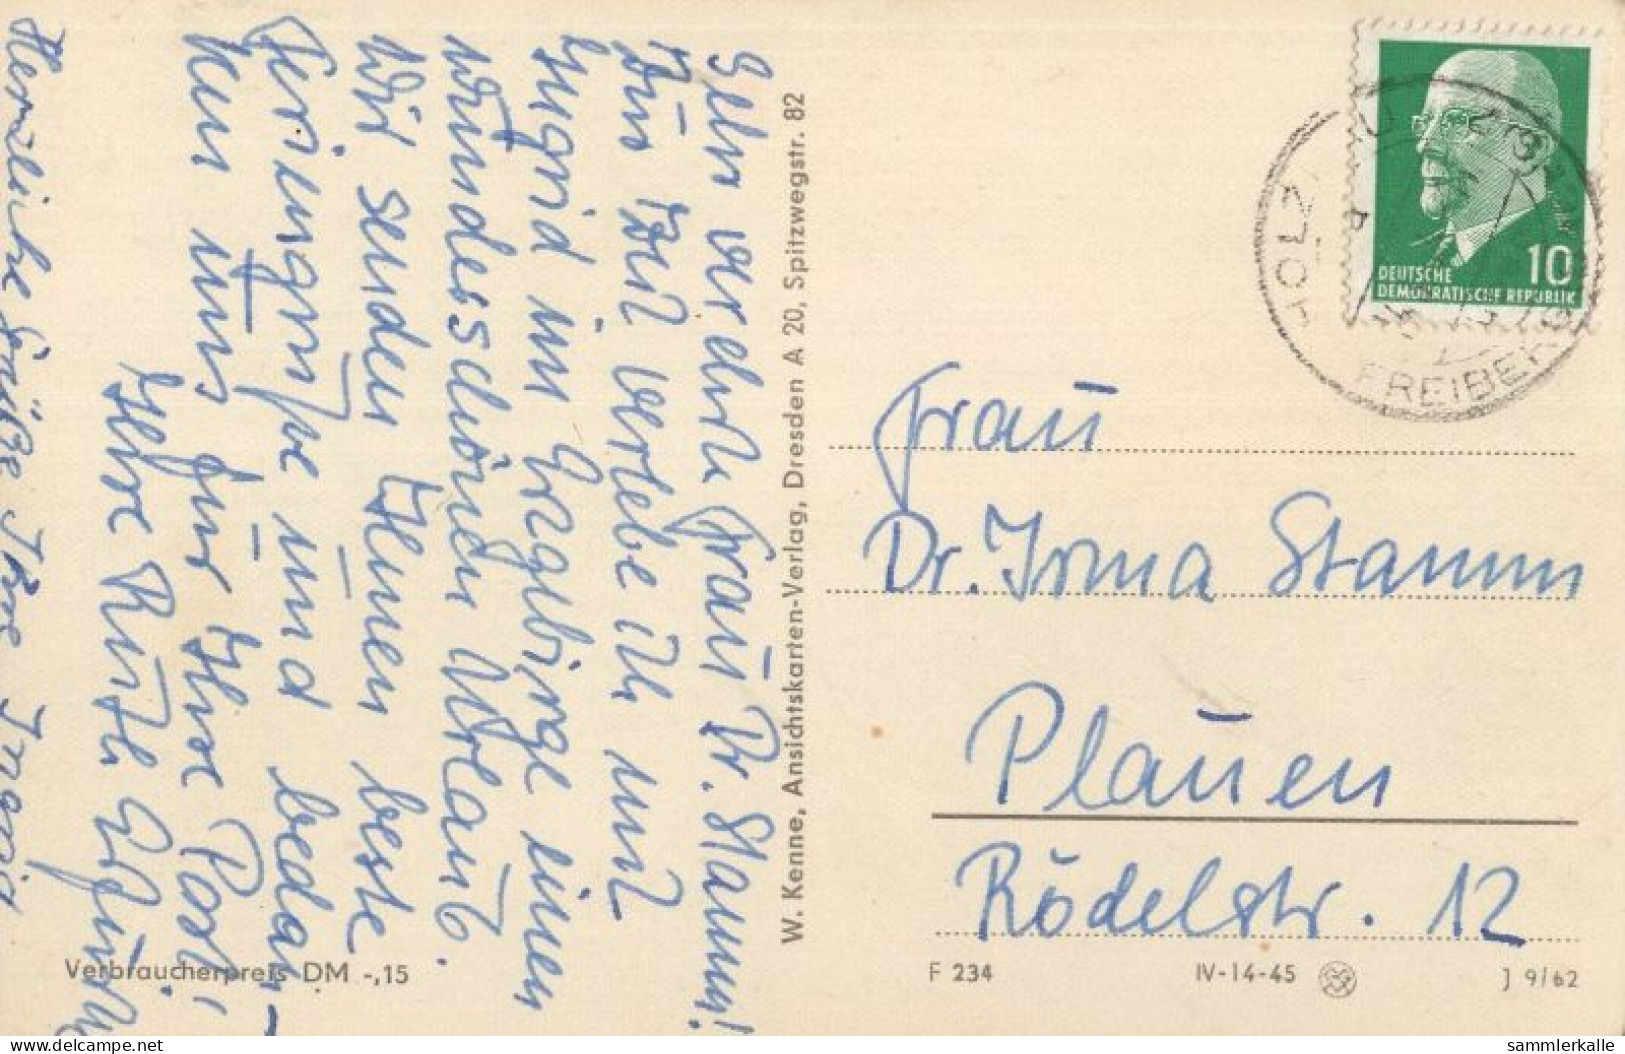 Sehr verehrte Frau Dr. Stamm!
Nun bin verlebe ich mit
Ingrid im Erzgebirge einen
wunderschönen Urlaub.
Wir senden Ihnen beste
Feriengrüße und bedan-
ken uns für Ihre Post,
Ihre Ruth
Herzliche Grüße Ihre Ingrid
W. Kenne, Ansichtskarten-Verlag, Dresden A 20, Spitzwegstr. 82
DEUTSCHE
DEMOKRATISCHE REPUBLIK
10
HOLZ
FREIBERG
Frau
Dr. Irma Stamm
Plauen
Rödelstr. 12
Verbraucherpreis DM -,15
F 234
IV-14-45
J 9/62
delcampe.net
sammlerkalle